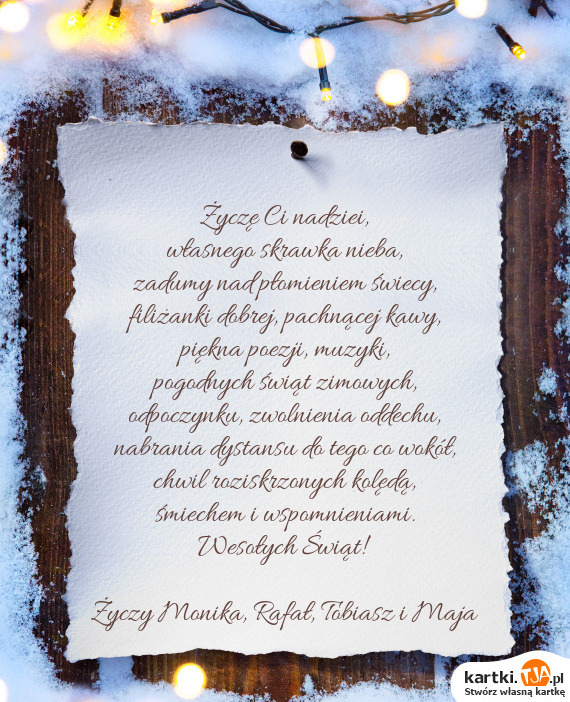 Życzę Ci nadziei,
własnego skrawka nieba,
zadumy nad płomieniem świecy,
filiżanki dobrej, pachnącej kawy,
piękna poezji, muzyki,
pogodnych świąt zimowych,
odpoczynku, zwolnienia oddechu,
nabrania dystansu do tego co wokół,
chwil roziskrzonych kolędą,
śmiechem i wspomnieniami.
Wesołych Świąt!
Życzy Monika, Rafał, Tobiasz i Maja
kartki.TJA.pl
Stwórz własną kartkę